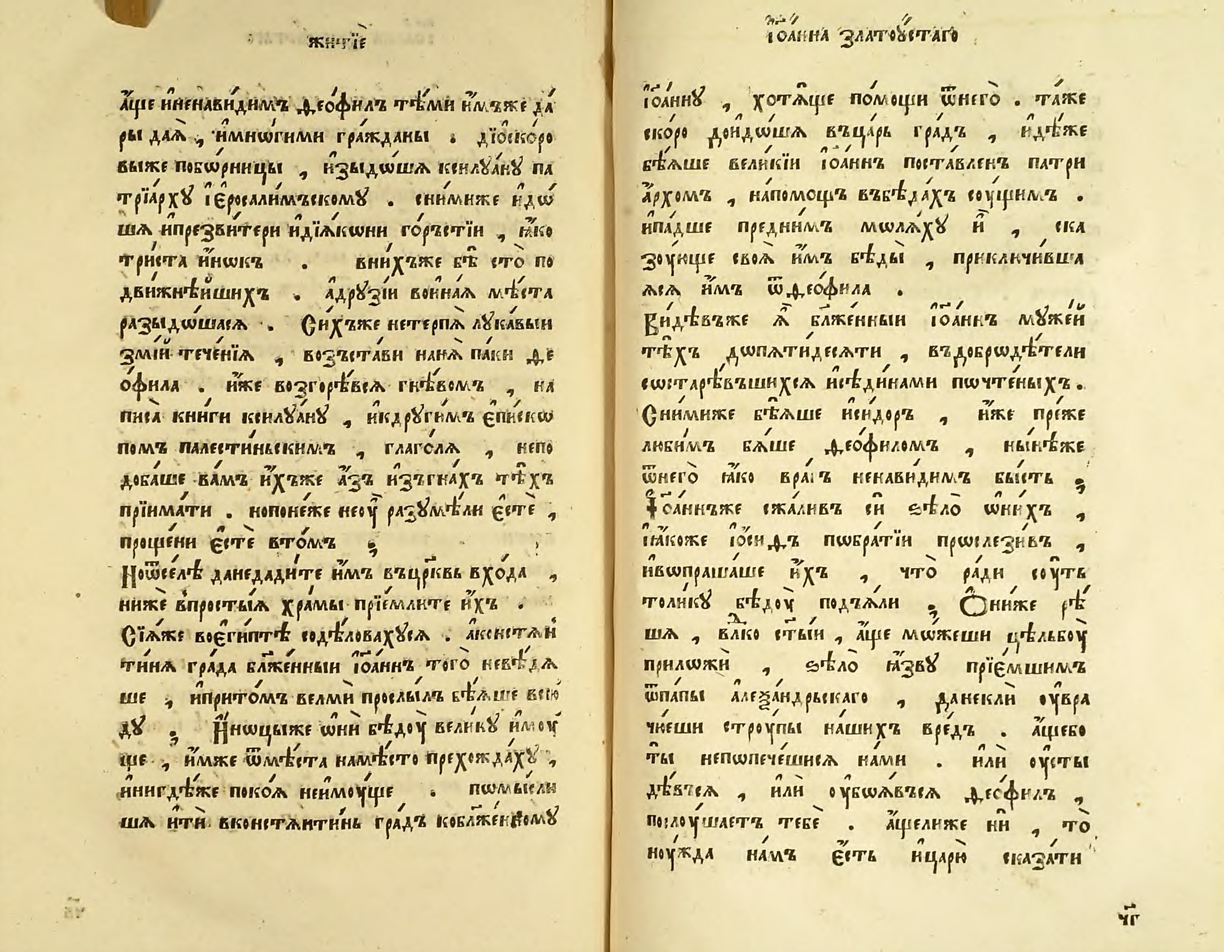 житїе
а҆́ще и҆ненави́димъ ѳео́филъ тѣ́ми и҆́мъже да́
ры дая̀ , и҆мнѡ́гими гра́жданы . дїо́скоро
выже побѡ́рницы , и҆зыдѡ́шѧ ксилꙋа́нꙋ па
трїа́рхꙋ і҆єросали́мъскомꙋ . сни́миже и҆дѡ́
шѧ и҆презви́тери и҆дїѧ́кѡни го́ръстїи , ꙗ҆́ко
три́ста и҆́нѡкъ . вни́хъже бѣ̀ сто̀ по
дви́жнѣйшихъ . а҆дрꙋзі́и во́инаѧ мѣ́ста
разыдѡ́шасѧ . Си́хъже нетерпѧ̀ лꙋка́выи
змі́й тече́нїѧ , возъста́ви нанѧ̀ па́ки ѳе
о́фила . и҆́же возгорѣ́всѧ гнѣ́вомъ , на
писа̀ кни́ги ксилꙋа́нꙋ , и҆кдрꙋги́мъ є҆пи́скѡ
помъ палести́ньскимъ , глаго́лѧ , непо
доба́ше ва́мъ и҆́хъже а҆́зъ и҆зъгна́хъ тѣ́хъ
прїима́ти . нопоне́же неоу҆̀ разꙋмѣ́ли є҆стѐ ,
проще́ни є҆стѐ вто́мъ ;
Ноѿсе́лѣ данедади́те и҆̀мъ въцр҃ковь вхо́да ,
нижѐ впросты́ѧ хра́мы прїе́млите и҆́хъ .
Сїѧ́же воє҆ги́птѣ содѣ́ловахꙋсѧ . а҆констѧн
ти́нѧ гра́да бл҃же́нныи і҆ѡа́ннъ того̀ невѣ́дѧ
ше , и҆прито́мъ велмѝ прослы́лъ бѣ́ѧше всю́
дꙋ . И҆́нѡцыже ѻ҆нѝ бѣдоу̀ вели́кꙋ и҆мꙋ́
ще , и҆́мже ѿмѣ́ста намѣ́сто прехожда́хꙋ ,
и҆нигдѣ́же поко́ѧ неимоу́ще . пѡмы́сли
шѧ и҆тѝ вконстѧнти́нь гра́дъ кобл҃же́нномꙋ
і҆ѡа́нна златоу́стаго
і҆ѡа́ннꙋ , хотѧ́ще по́мощи ѿнего̀ . та́же
ско́ро доидо́шѧ въца́рь гра́дъ , и҆дѣ́же
бѣ́ѧше вели́кїи і҆ѡа́ннъ поста́вленъ патри
а҆́рхомъ , напо́мощь въбѣда́хъ соу́щимъ .
и҆па́дше пред̾ни́мъ молѧ́хꙋ и҆̀ , ска
зоу́юще своѧ̀ и҆̀мъ бѣ́ды , приключи́вша
ѧсѧ и҆̀мъ ѿѳео́фила .
Ви́дѣвъже ѧ҆̀ бл҃же́нныи і҆ѡа́ннъ мꙋже́й
тѣ́хъ дѡпѧти́десѧти , въдобрѡдѣ́тели
сѡстарѣ́въшихсѧ и҆сѣди́нами пѡчте́ныхъ .
Сни́миже бѣ́ѧше и҆си́дѡръ , и҆́же пре́же
люби́мъ бѧ́ше ѳео́филомъ , ны́нѣже
ѿнего̀ ꙗ҆́ко вра́гъ ненави́димъ бы́сть ;
І҆ѡа́ннъже сжа́ливъ си ѕѣло̀ ѡ҆ни́хъ ,
ꙗ҆́коже і҆ѡ́сиѳъ пѡбра́тїи прѡслези́въ ,
и҆вѡпраша́ше и҆́хъ , что̀ ра́ди соу́ть
толи́кꙋ бѣдоу̀ подъѧ́ли ; Ѻ҆ни́же рѣ́
шѧ , влⷣко ст҃ы́и , а҆́ще мѡ́жеши цѣльбоу̀
приложѝ , ѕѣло̀ ꙗ҆́звꙋ прїе́мшимъ
ѿпа́пы а҆леѯа́ндрьскаго , данеклѝ оу҆вра
чю́еши строу́пы на́шихъ вре́дъ . а҆́щебо
ты̀ непѡпече́шисѧ на́ми . и҆лѝ оу҆сты
дѣ́всѧ , и҆лѝ оу҆боѧ́въсѧ ѳео́филъ ,
послоу́шаетъ тебѐ . а҆́щелиже нѝ , то̀
ноу́жда на́мъ є҆́сть и҆царю̀ сказа́ти
чг҃